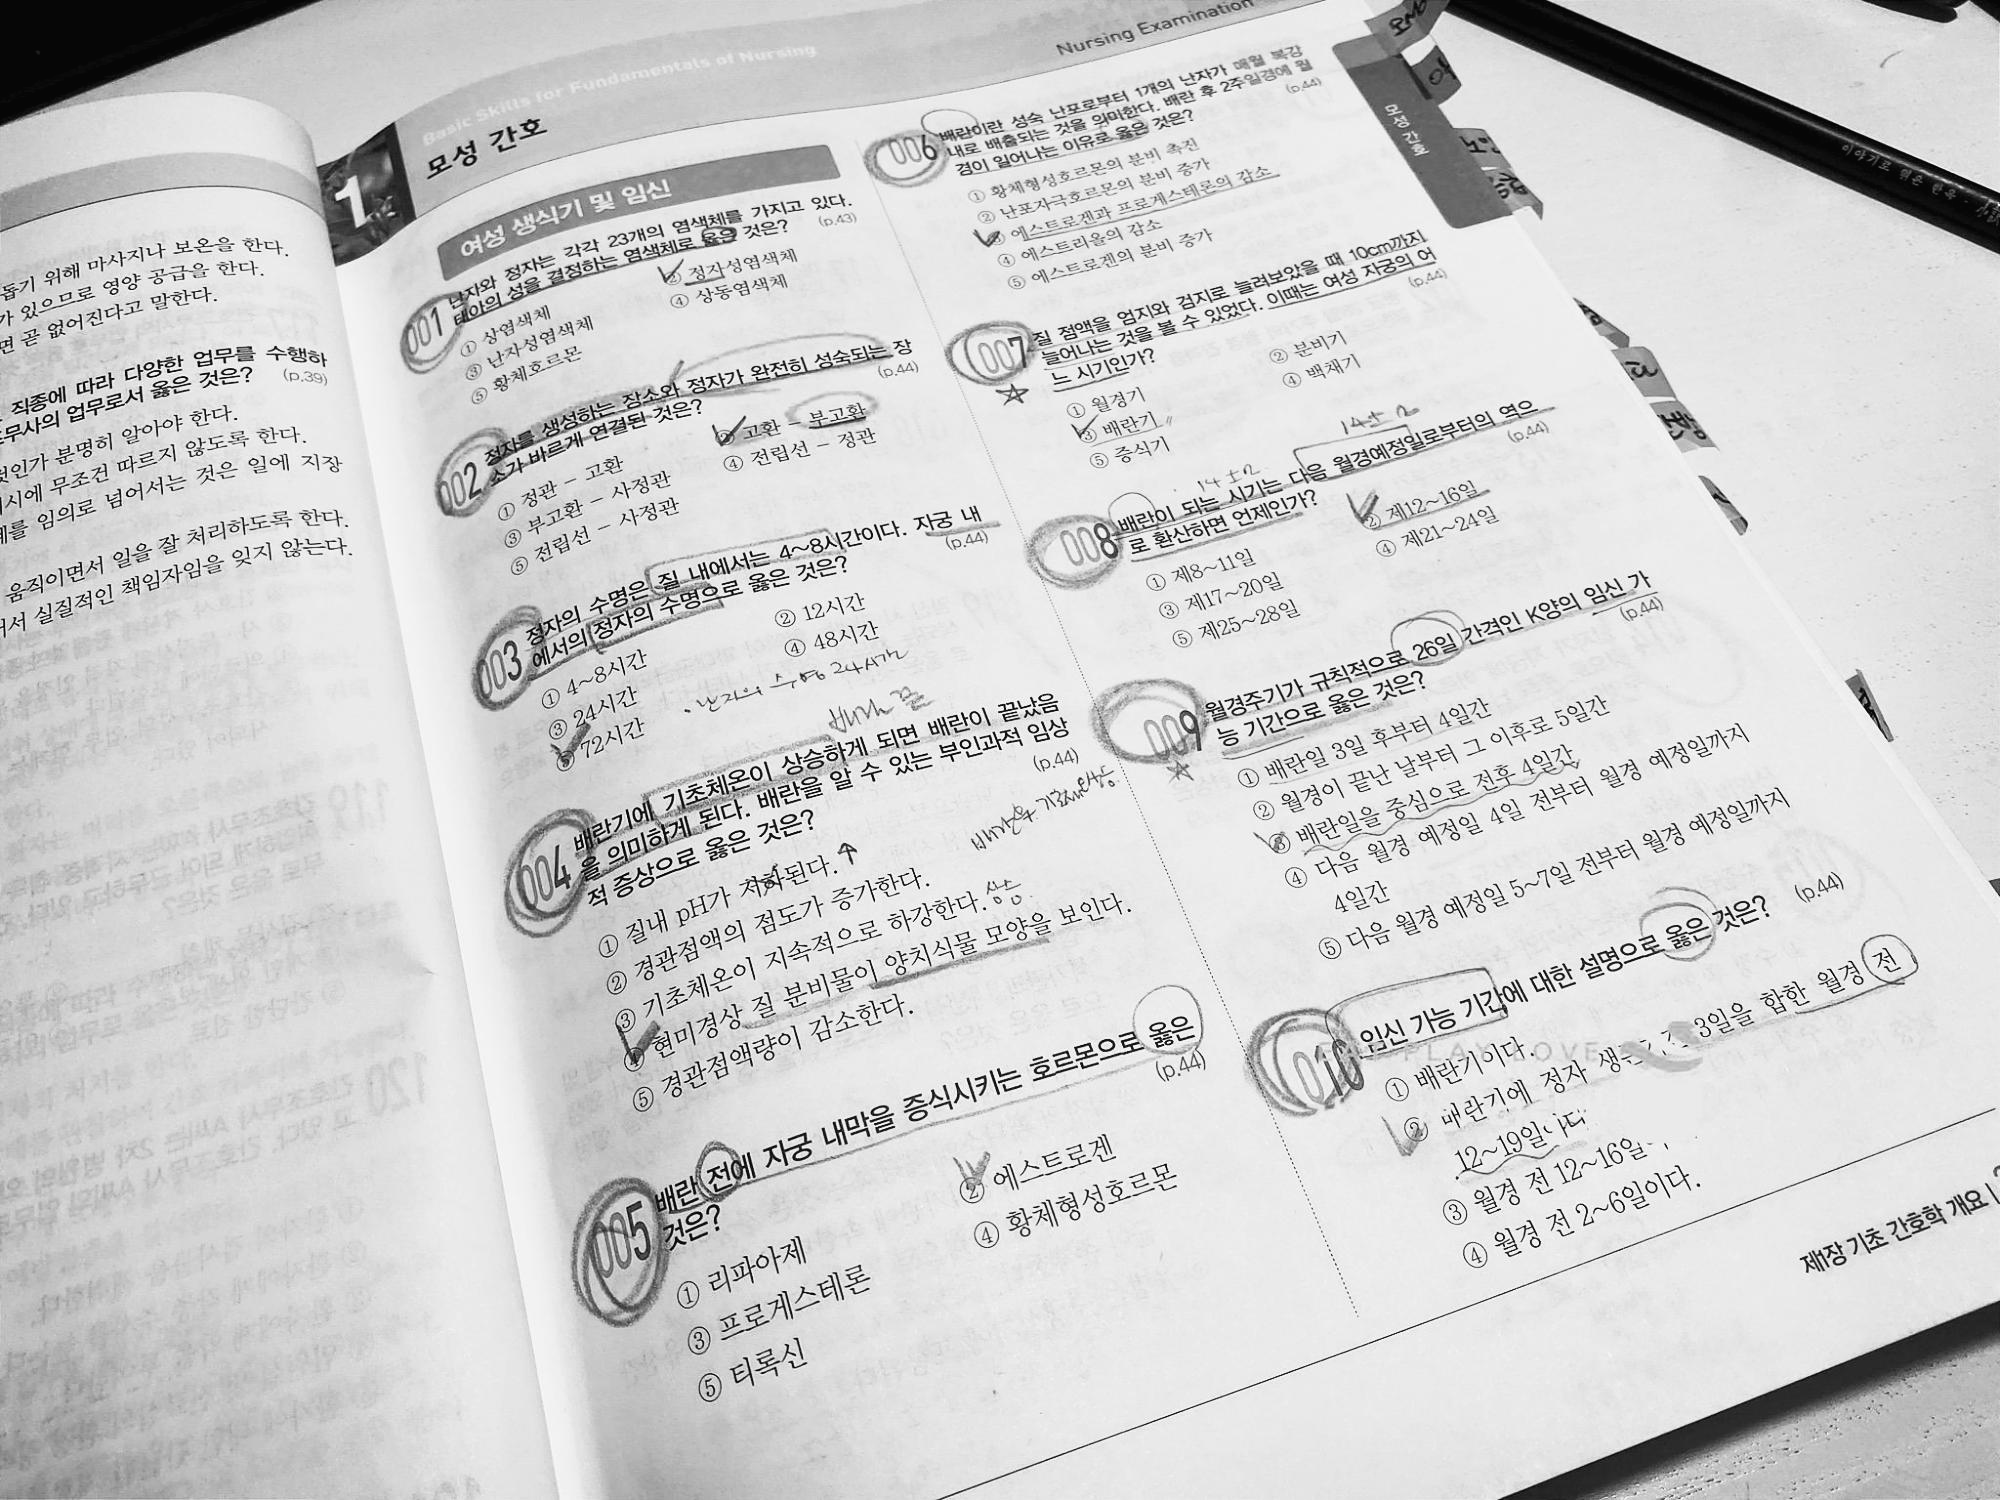 돕기 위해 마사지나 보온을 한다.
가 있으므로 영양 공급을 한다.
면 곧 없어진다고 말한다.
직종에 따라 다양한 업무를 수행하
무사의 업무로서 옳은 것은? (p.39)
것인가 분명히 알아야 한다.
시에 무조건 따르지 않도록 한다.
를 임의로 넘어서는 것은 일에 지장
움직이면서 일을 잘 처리하도록 한다.
서 실질적인 책임자임을 잊지 않는다.
Basic Skills for Fundamentals of Nursing
1 모성 간호
여성 생식기 및 임신
001 난자와 정자는 각각 23개의 염색체를 가지고 있다.
태아의 성을 결정하는 염색체로 옳은 것은? (p.43)
① 상염색체 ② 정자성염색체
③ 난자성염색체 ④ 상동염색체
⑤ 황체호르몬
002 정자를 생성하는 장소와 정자가 완전히 성숙되는 장
소가 바르게 연결된 것은? (p.44)
① 정관 – 고환 ② 고환 – 부고환
③ 부고환 – 사정관 ④ 전립선 – 정관
⑤ 전립선 – 사정관
003 정자의 수명은 질 내에서는 4~8시간이다. 자궁 내
에서의 정자의 수명으로 옳은 것은? (p.44)
① 4~8시간 ② 12시간
③ 24시간 ④ 48시간
⑤ 72시간
· 난자의 수명 24시간
배란 끝
004 배란기에 기초체온이 상승하게 되면 배란이 끝났음
을 의미하게 된다. 배란을 알 수 있는 부인과적 임상
적 증상으로 옳은 것은? (p.44)
배란후 기초체온상승
① 질내 pH가 저하된다. ↑
② 경관점액의 점도가 증가한다.
③ 기초체온이 지속적으로 하강한다. 상승
④ 현미경상 질 분비물이 양치식물 모양을 보인다.
⑤ 경관점액량이 감소한다.
005 배란 전에 자궁 내막을 증식시키는 호르몬으로 옳은
것은? (p.44)
① 리파아제 ② 에스트로겐
③ 프로게스테론 ④ 황체형성호르몬
⑤ 티록신
Nursing Examination
006 배란이란 성숙 난포로부터 1개의 난자가 매월 복강
내로 배출되는 것을 의미한다. 배란 후 2주일경에 월
경이 일어나는 이유로 옳은 것은? (p.44)
① 황체형성호르몬의 분비 촉진
② 난포자극호르몬의 분비 증가
③ 에스트로겐과 프로게스테몬의 감소
④ 에스트리올의 감소
⑤ 에스트로겐의 분비 증가
007 질 점액을 엄지와 검지로 늘려보았을 때 10cm까지
늘어나는 것을 볼 수 있었다. 이때는 여성 자궁의 어
느 시기인가? (p.44)
① 월경기 ② 분비기
③ 배란기 ④ 백채기
⑤ 증식기
14± 2
14±2
008 배란이 되는 시기는 다음 월경예정일로부터의 역으
로 환산하면 언제인가? (p.44)
① 제8~11일 ② 제12~16일
③ 제17~20일 ④ 제21~24일
⑤ 제25~28일
009 월경주기가 규칙적으로 26일 간격인 K양의 임신 가
능 기간으로 옳은 것은? (p.44)
① 배란일 3일 후부터 4일간
② 월경이 끝난 날부터 그 이후로 5일간
③ 배란일을 중심으로 전후 4일간
④ 다음 월경 예정일 4일 전부터 월경 예정일까지
4일간
⑤ 다음 월경 예정일 5~7일 전부터 월경 예정일까지
010 임신 가능 기간에 대한 설명으로 옳은 것은? (p.44)
① 배란기이다.
② 배란기에 정자 3일을 합한 월경 전
12~19일
③ 월경 전 12~16일
④ 월경 전 2~6일이다.
제1장 기초 간호학 개요 |
모성 간호